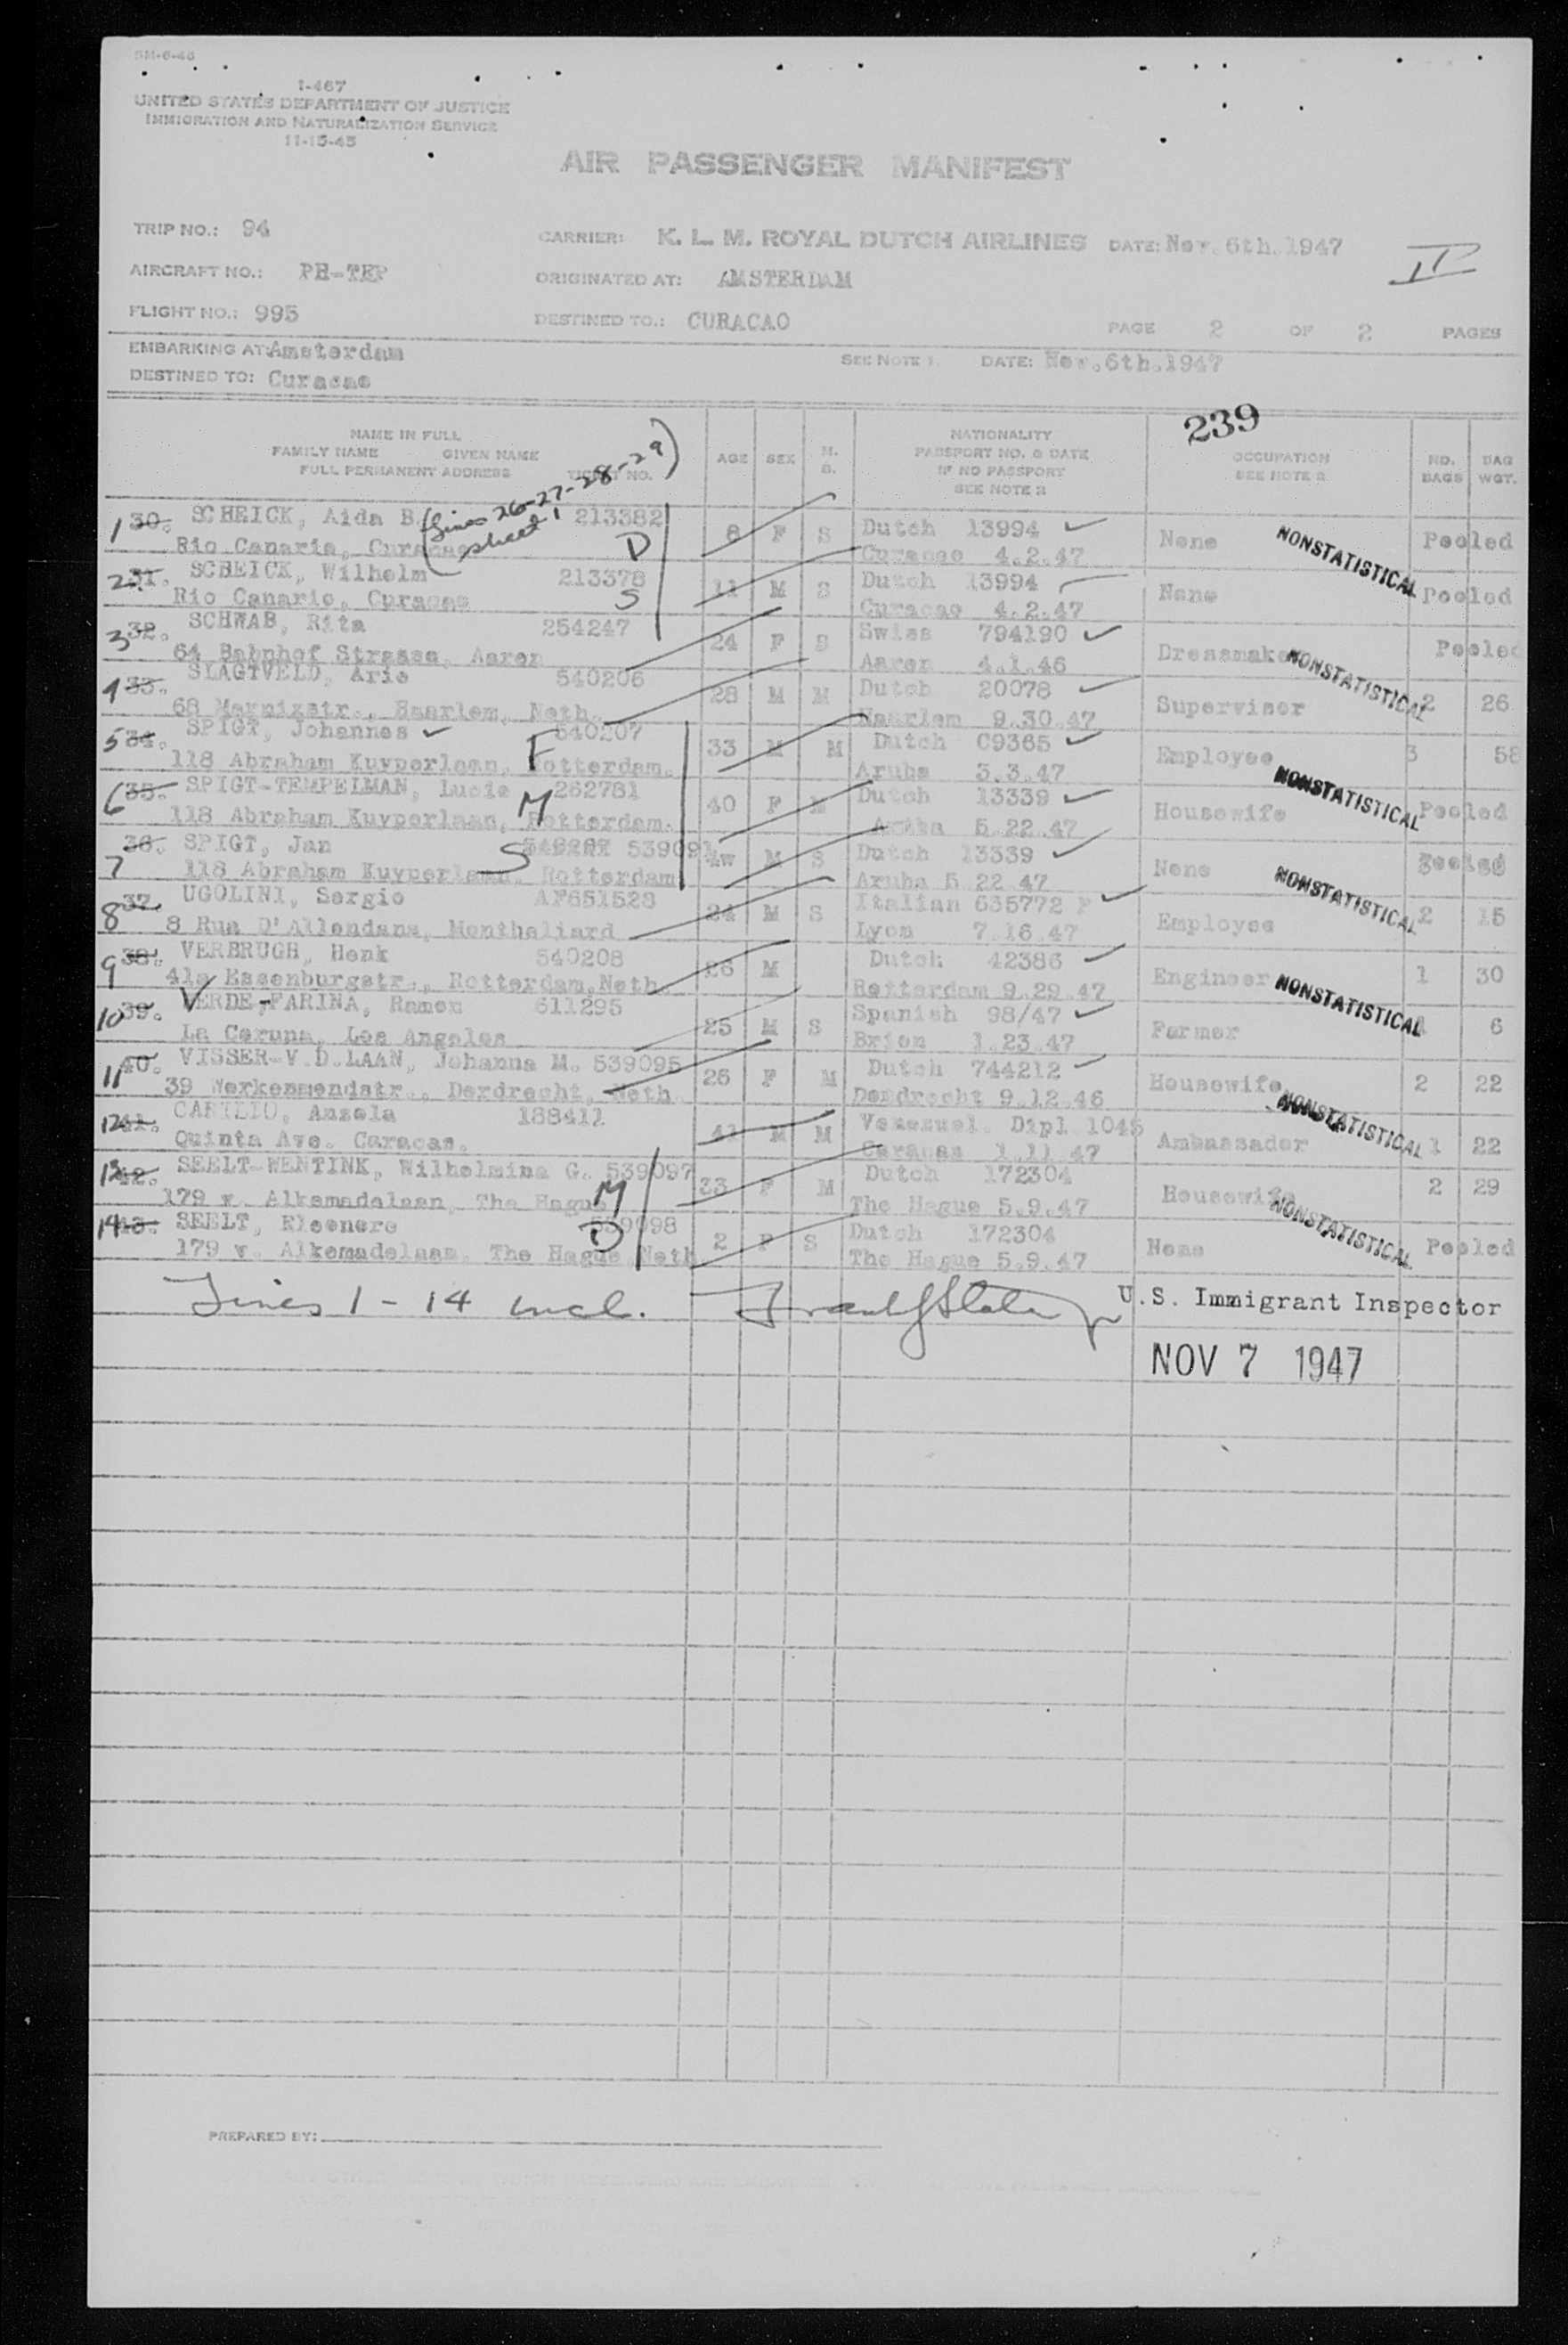 5M-6-46
I-467
UNITED STATES DEPARTMENT OF JUSTICE
IMMIGRATION AND NATURALIZATION SERVICE
11-15-45
AIR PASSENGER MANIFEST
TRIP NO.: 94 CARRIER: K. L. M. ROYAL DUTCH AIRLINES DATE: Nov. 6th. 1947
II
AIRCRAFT NO.: PH-TEP ORIGINATED AT: AMSTERDAM
FLIGHT NO.: 995 DESTINED TO.: CURACAO PAGE 2 OF 2 PAGES
EMBARKING AT: Amsterdam SEE NOTE 1. DATE: Nov.6th.1947
DESTINED TO: Curacao
239
NAME IN FULL
FAMILY NAME GIVEN NAME
FULL PERMANENT ADDRESS TICKET NO. AGE SEX M. S. NATIONALITY PASSPORT NO. & DATE IF NO PASSPORT SEE NOTE 2 OCCUPATION SEE NOTE 2 NO. BAGS BAG WGT.
(Lines 26-27-28-29)
sheet 1
1 30. SCHEICK, Aida B. 213382 8 F S Dutch 13994 None NONSTATISTICAL Pooled
Rio Canario, Curacao D Curacao 4.2.47
2 31. SCHEICK, Wilhelm 213378 11 M S Dutch 13994 None Pooled
Rio Canario, Curacao S Curacao 4.2.47
3 32. SCHWAB, Rita 254247 24 F S Swiss 794190 Dressmaker NONSTATISTICAL Pooled
64 Bahnhof Strasse, Aaren Aaren 4.1.46
4 33. SLAGTVELD, Arie 540206 28 M M Dutch 20078 Supervisor 2 26
68 Marnixstr., Haarlem, Neth. Haarlem 9.30.47
5 34. SPIGT, Johannes 540207 33 M M Dutch C9365 Employee 3 58
118 Abraham Kuyperlaan, Rotterdam. F Aruba 3.3.47
6 35. SPIGT-TEMPELMAN, Lucie 262781 40 F M Dutch 13339 Housewife NONSTATISTICAL Pooled
118 Abraham Kuyperlaan, Rotterdam. M Aruba 5.22.47
7 36. SPIGT, Jan 539091 4w M S Dutch 13339 None
118 Abraham Kuyperlaan. Rotterdam S Aruba 5 22 47
8 37. UGOLINI, Sergio AF651528 24 M S Italian 635772 P Employee NONSTATISTICAL 2 15
8 Rue D'Allendans, Monthaliard Lyon 7.16.47
9 38. VERBRUGH, Henk 540208 26 M Dutch 42386 Engineer NONSTATISTICAL 1 30
41a Essenburgstr., Rotterdam, Neth. Rotterdam 9.29.47
10 39. VERDE-FARINA, Ramon 611295 25 M S Spanish 98/47 Farmer 1 6
La Coruna, Los Angeles Brion 1.23.47
11 40. VISSER-V.D.LAAN, Johanna M. 539095 26 F M Dutch 744212 Housewife 2 22
39 Werkenmendstr., Dordrecht, Neth. Dordrecht 9.12.46
12 41. CARILLO, Anzola 188411 41 M M Venezuel. Dipl 1045 Ambassador NONSTATISTICAL 1 22
Quinta Ave. Caracas. Caracas 1.11 47
13 42. SEELT-WENTINK, Wilhelmina G. 539097 33 F M Dutch 172304 Housewife 2 29
179 v. Alkemadelaan, The Hague M The Hague 5.9.47
14 43. SEELT, Eleonore 539098 2 F S Dutch 172304 None NONSTATISTICAL Pooled
179 v. Alkemadelaan. The Hague Neth. D The Hague 5.9.47
Lines 1 - 14 incl. U.S. Immigrant Inspector
NOV 7 1947
PREPARED BY: